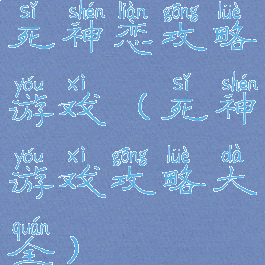 sǐ shén liàn gōng lüè
死神恋攻略
yóu xì sǐ shén
游戏(死神
yóu xì gōng lüè dà
游戏攻略大
quán
全)